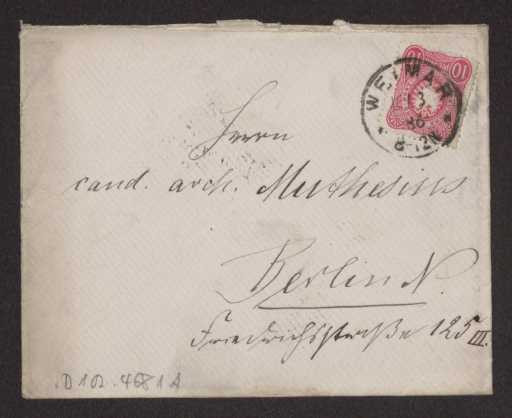 10 10
WEIMAR
86
8-12V
Herrn
cand. arch. Muthesius
Berlin N.
Friedrichsstraße 125 III.
D 102-4681 A